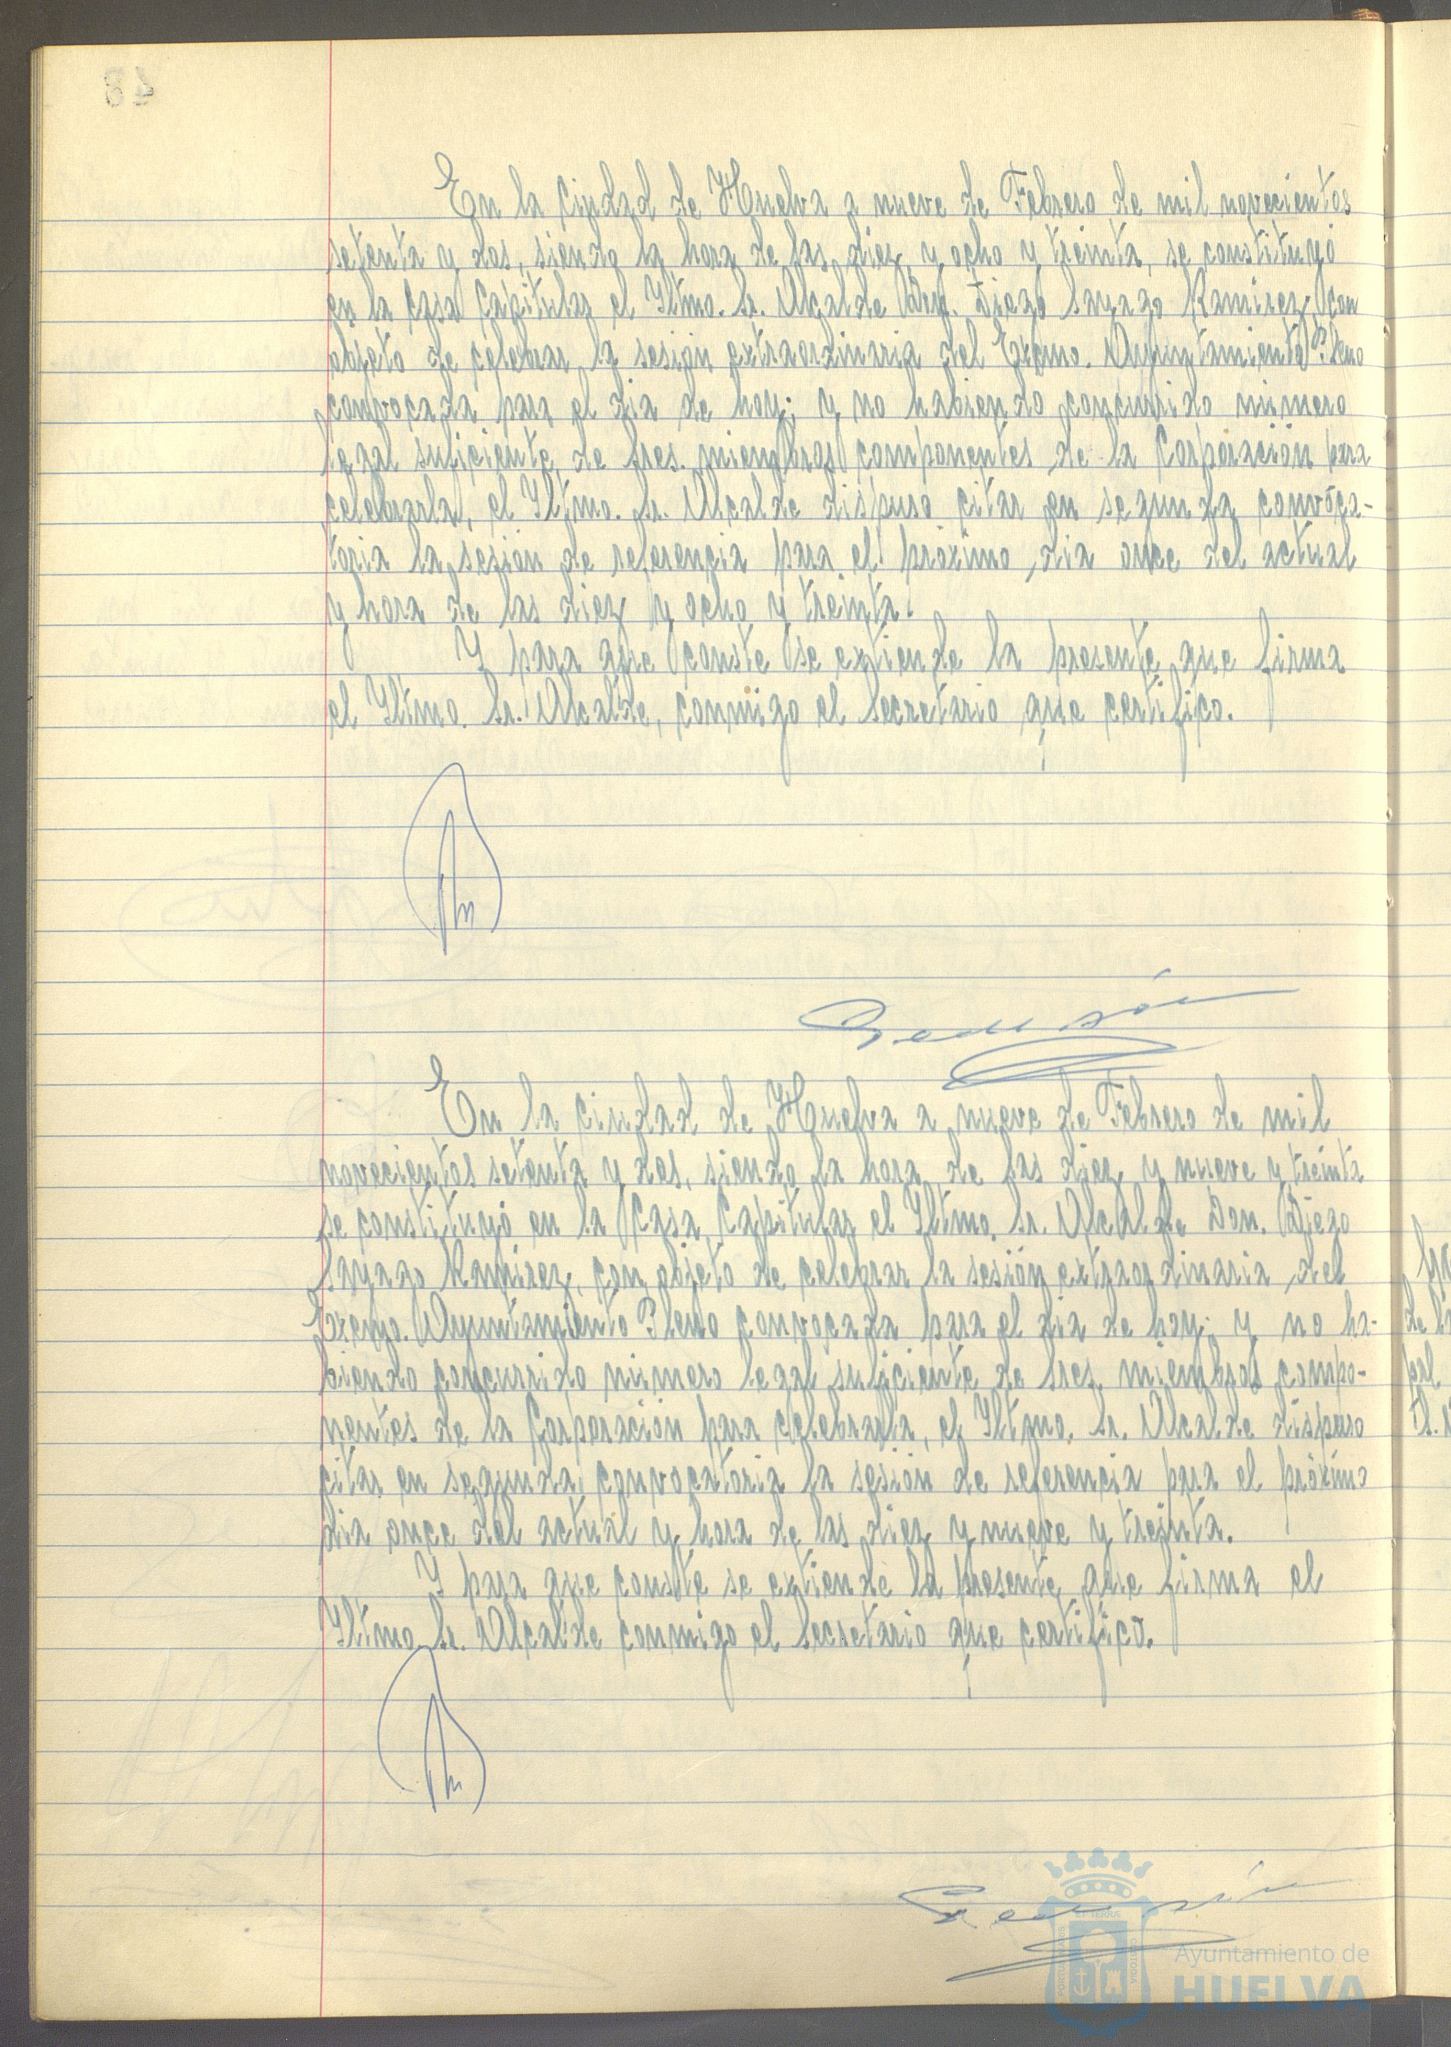 En la Ciudad de Huelva a nueve de Febrero de mil novecientos
setenta y dos, siendo la hora de las diez y ocho y treinta, se constituyó
en la Casa Capitular el Iltmo. Sr. Alcalde Don. Diego Sayago Ramirez, con
objeto de celebrar la sesión extraordinaria del Excmo. Ayuntamiento Pleno
convocada para el dia de hoy; y no habiendo concurrido número
legal suficiente de Sres. miembros componentes de la Corporación para
celebrarla, el Iltmo. Sr. Alcalde dispuso citar en segunda convoca-
toria la sesión de referencia para el próximo dia once del actual
y hora de las diez y ocho y treinta.
Y para que conste se extiende la presente que firma
el Iltmo. Sr. Alcalde, conmigo el Secretario que certifico.
En la Ciudad de Huelva a nueve de Febrero de mil
novecientos setenta y dos, siendo la hora de las diez y nueve y treinta
se constituyó en la Casa Capitular el Iltmo. Sr. Alcalde Don. Diego
Sayago Ramirez, con objeto de celebrar la sesión extraordinaria del
Excmo. Ayuntamiento Pleno convocada para el dia de hoy; y no ha-
biendo concurrido número legal suficiente de Sres. miembros compo-
nentes de la Corporación para celebrarla, el Iltmo. Sr. Alcalde dispuso
citar en segunda convocatoria la sesión de referencia para el próximo
dia once del actual y hora de las diez y nueve y treinta.
Y para que conste se extiende la presente que firma el
Iltmo. Sr. Alcalde conmigo el Secretario que certifico.
Ayuntamiento de
HUELVA